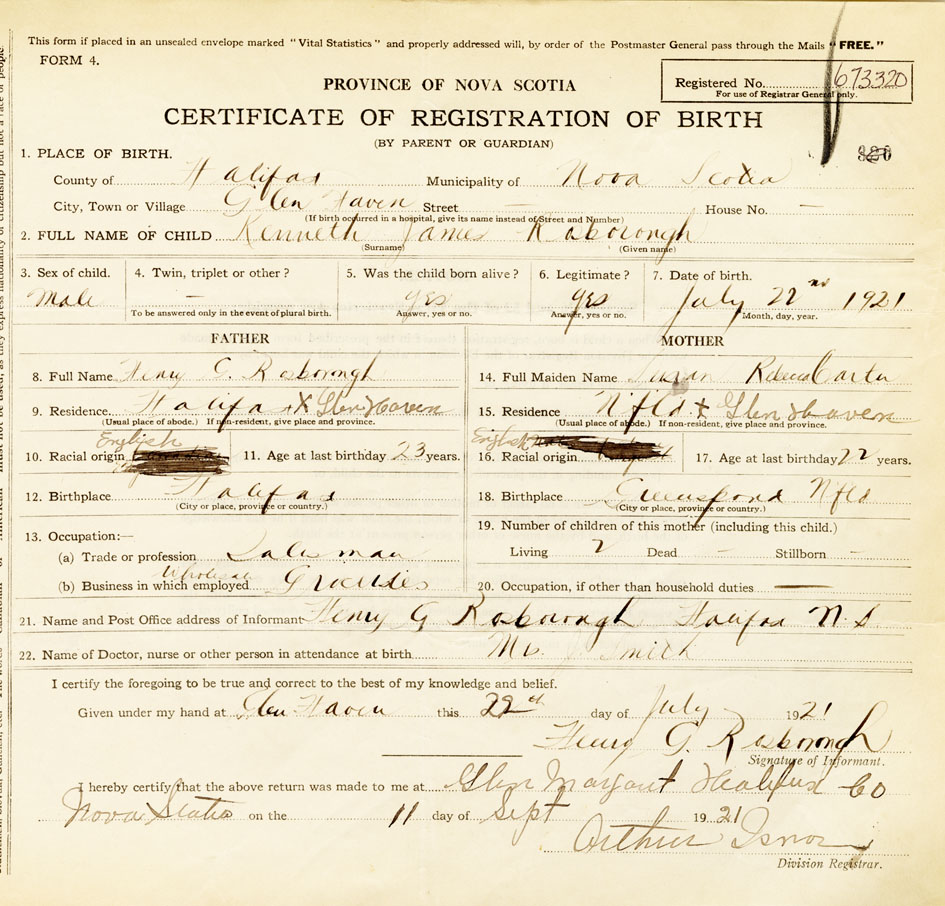 This form if placed in an unsealed envelope marked "Vital Statistics" and properly addressed will, by order of the Postmaster General pass through the Mails "FREE."
FORM 4.
Registered No. 673320
For use of Registrar General only.
PROVINCE OF NOVA SCOTIA
CERTIFICATE OF REGISTRATION OF BIRTH
(BY PARENT OR GUARDIAN)
1. PLACE OF BIRTH.
County of Halifax Municipality of Nova Scotia
City, Town or Village Glen Haven Street — House No. —
(If birth occurred in a hospital, give its name instead of Street and Number)
2. FULL NAME OF CHILD Kenneth James Rosborough
(Surname) (Given name)
3. Sex of child. 4. Twin, triplet or other? 5. Was the child born alive? 6. Legitimate? 7. Date of birth.
Male — yes yes July 22nd 1921
To be answered only in the event of plural birth. Answer, yes or no. Answer, yes or no. Month, day, year.
FATHER
8. Full Name Henry G. Rosborough
9. Residence Halifax X Glen Haven
(Usual place of abode.) If non-resident, give place and province.
English
10. Racial origin 11. Age at last birthday 23 years.
12. Birthplace Halifax
(City or place, province or country.)
13. Occupation:—
(a) Trade or profession Salesman
Wholesale
(b) Business in which employed Groceries
MOTHER
14. Full Maiden Name Susan Rebecca Carter
15. Residence Nfld X Glen Haven
(Usual place of abode.) If non-resident, give place and province.
English
16. Racial origin 17. Age at last birthday 22 years.
18. Birthplace Greenspond Nfld
(City or place, province or country.)
19. Number of children of this mother (including this child.)
Living 2 Dead — Stillborn —
20. Occupation, if other than household duties —
21. Name and Post Office address of Informant Henry G Rosborough Halifax N.S.
22. Name of Doctor, nurse or other person in attendance at birth Mrs. J Smith
I certify the foregoing to be true and correct to the best of my knowledge and belief.
Given under my hand at Glen Haven this 22th day of July 1921
Henry G. Rosborough
Signature of Informant.
I hereby certify that the above return was made to me at Glen Margaret Halifax Co
Nova Scotia on the 11 day of Sept 1921
Arthur Isnor
Division Registrar.